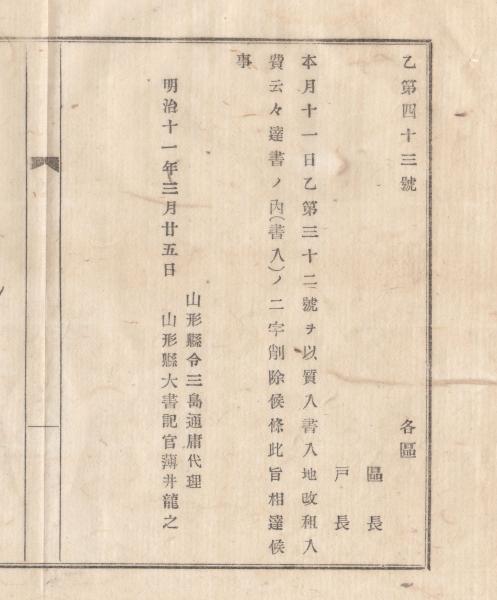 乙第四十三號
各區
區長
戸長
本月十一日乙第三十二號ヲ以質入書入地改租入
費云々達書ノ內(書入)ノ二字削除候條此旨相達候
事
明治十一年三月廿五日
山形縣令三島通庸代理
山形縣大書記官薄井龍之